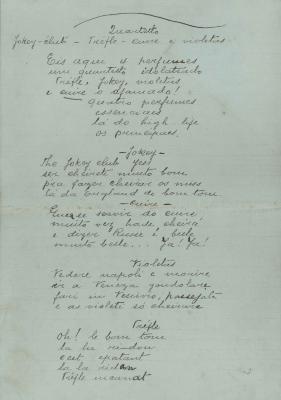 Quartetto
Jokey-club - Trèfle - cuire e violetas
Eis aqui os perfumes
um quarteto idolatrado
Trèfle, Jokey, violetas
e cuire o afamado!
quatro perfumes
essenciaes
la do high life
os principaes.
- Jokey -
The Jokey club Yes!
ser cheireta muito bom
pra fazer cheirar as miss
la da England de bom tom
- Cuire -
servir do cuire
muito vez hade, cheirá
e dizer Russe é bele
muito bele... Ja! Ja!
Violetas
Vedere napoli e morire
ir a Veneza gondolare
fari un Vesuvio,
e as violete só cheirire
Trèfle
Oh! le bom tom
la
c'est epatant
la la
Trèfle incarnat